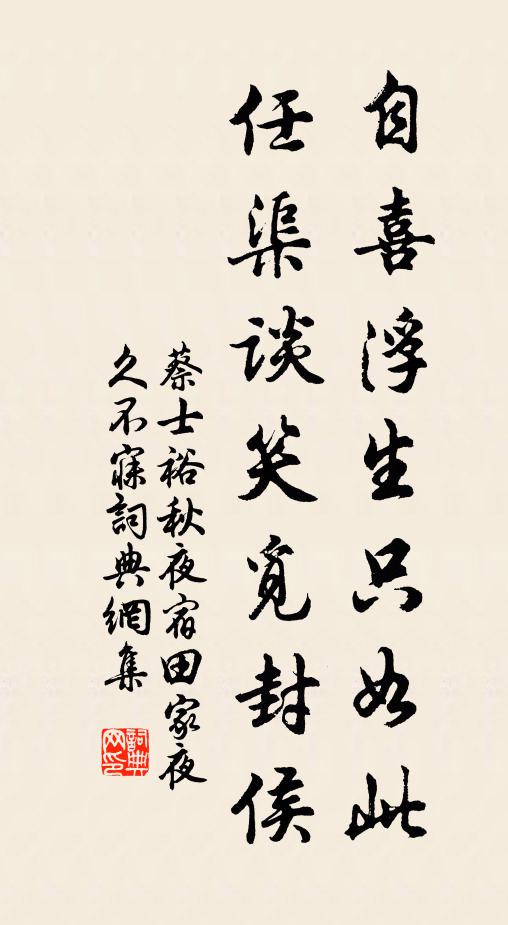 自喜浮生只如此
任渠談笑覓封侯
蔡士裕秋夜宿田家夜
久不寐詞典網集
詞典網印